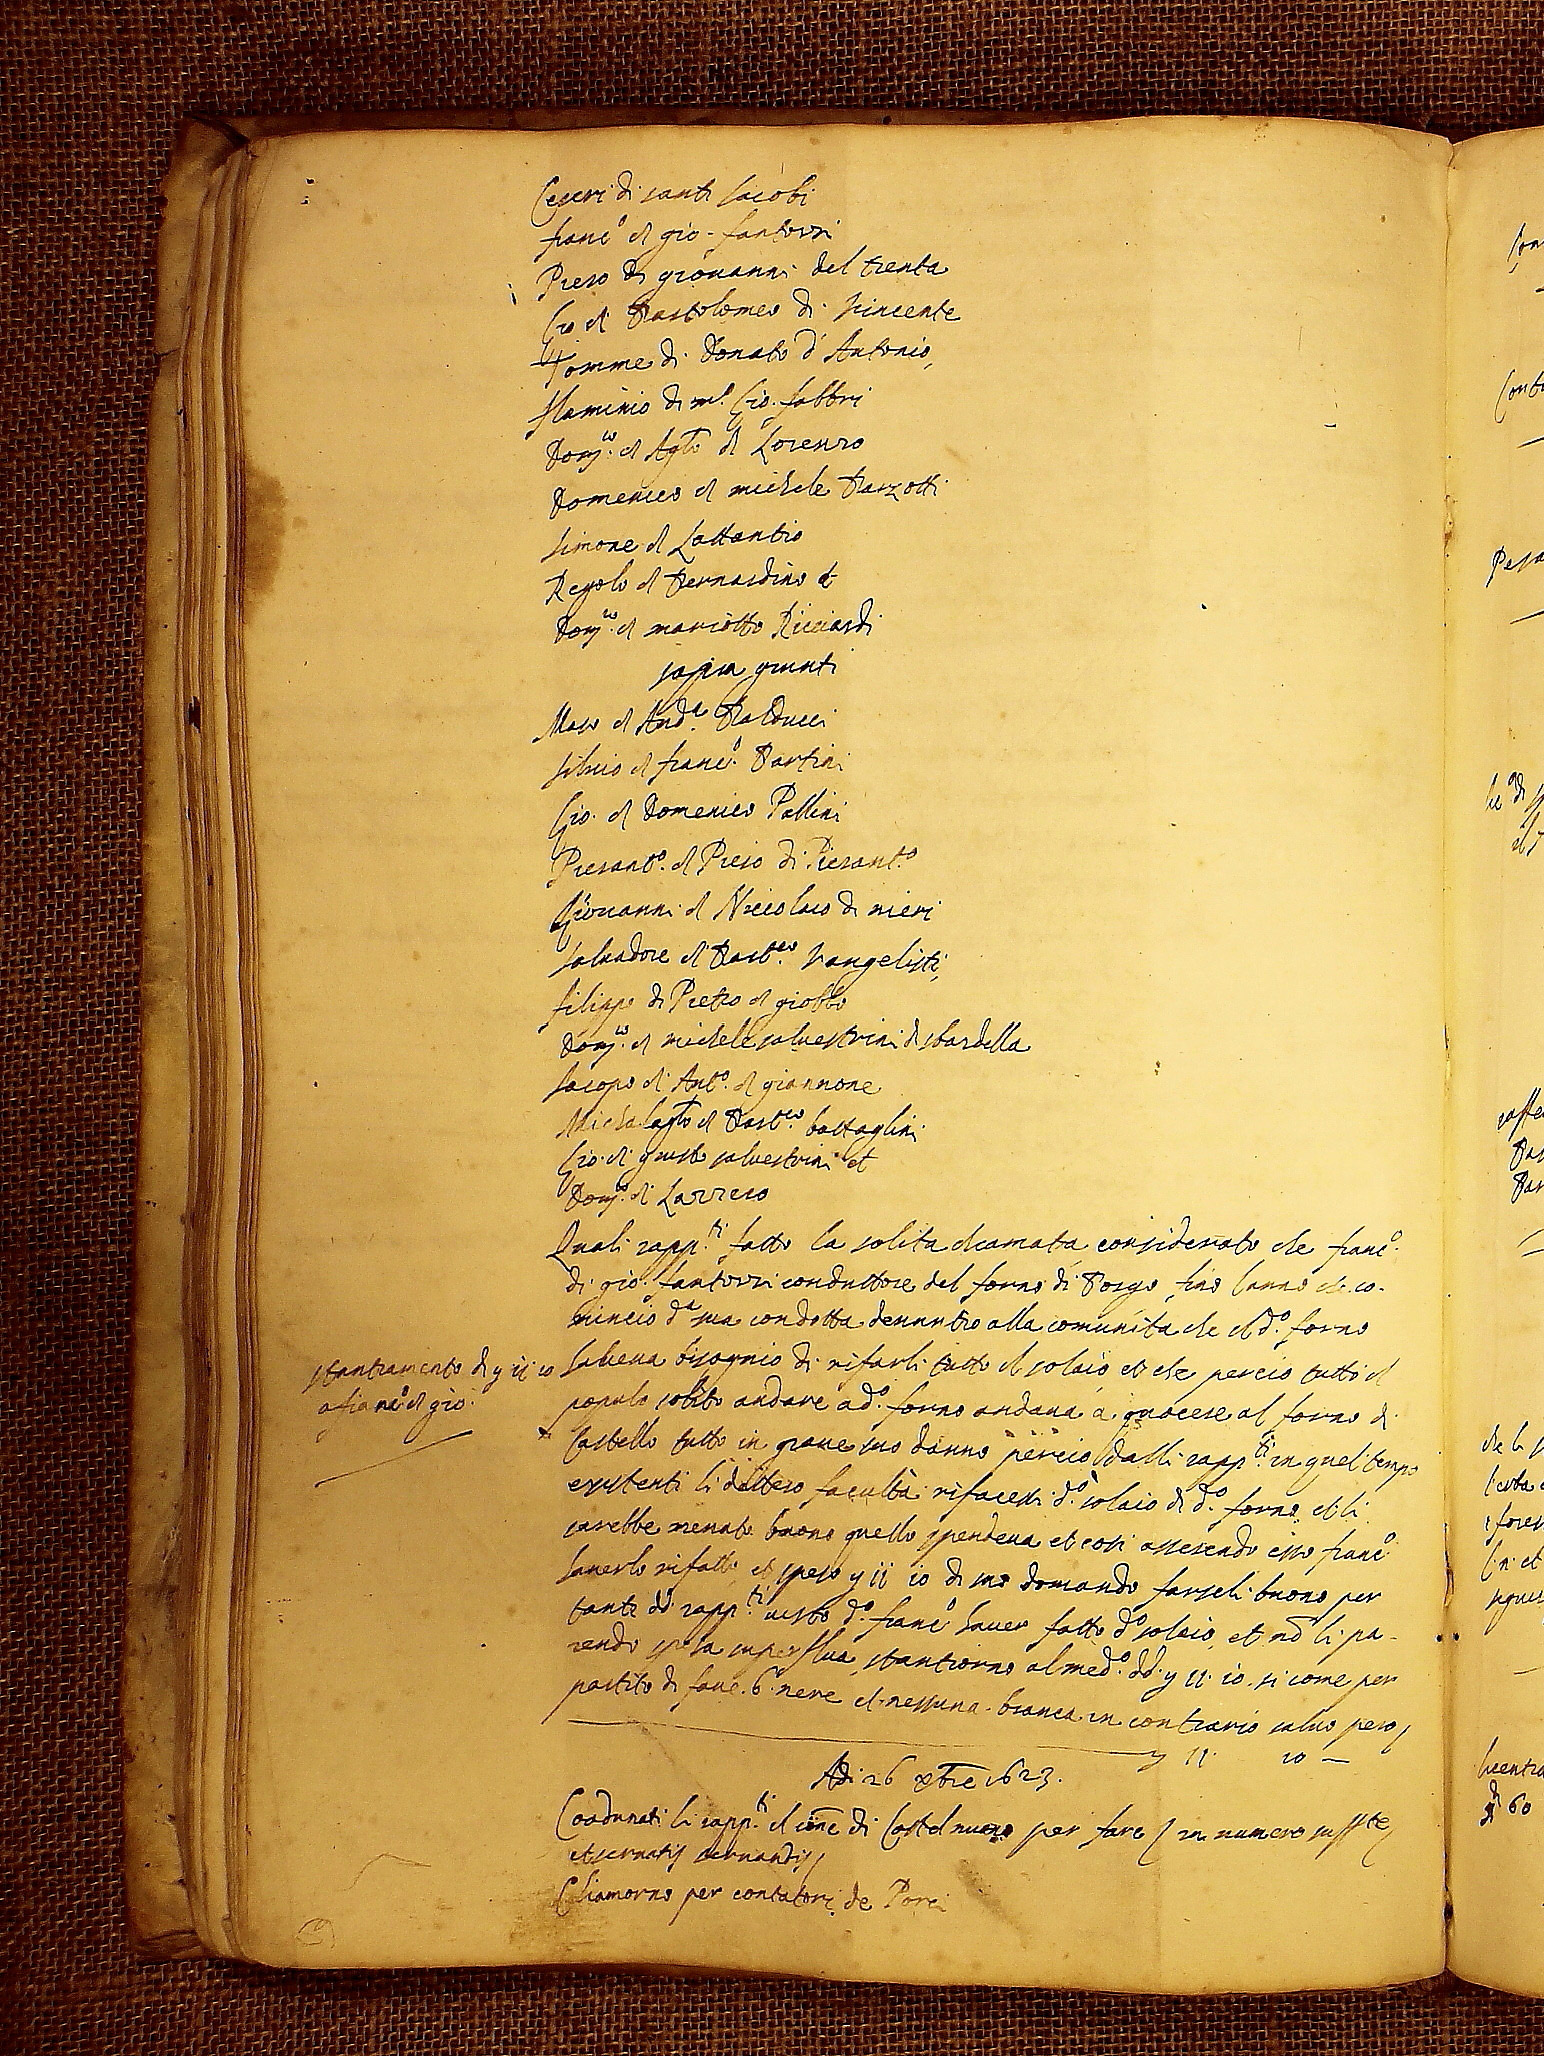 Ceseri di santi Jacobi
franc.o di gio. fantozzi
Piero di giovanni del trenta
Gio di Bartolomeo di Vincente
Tomme di Donato d'Antonio
flaminio di m.o Gio. fabbri
Dom.co di Ag.to di Lorenzo
Domenico di michele Barzotti
simone di Lattantio
Regolo di Bernardino et
Dom.co di mariotto Ricciardi
sopra giunti
Maso di And.a Balducci
silvio di franc.o Bartini
Gio. di Domenico Pallini
Pierant.o di Piero di Pierant.o
Giovanni di Niccolao di nieri
salvadore di Bart.eo Vangelisti
filippo di Pietro di giobbo
Dom.co di michele salvestrini di sbardella
Jacopo di Ant.o di giannone
Michelag.to di Bart.eo battaglini
Gio. di giusto salvestrini et
Dom.co di Lazzero
Quali rapp.ti fatto la solita chiamata considerato che franc.o
di gio. fantozzi conduttore del forno di Borgo fino lanno che co-
mincio d.a sua condotta denuntio alla comunita che il d.o forno
haveva bisognio di rifarli tutto il solaio et che percio tutto il
populo solito andare a d.o forno andava a quocere al forno di
Castello tutto in grave suo danno percio dalli rapp.ti in quel tempo
existenti li dettero faculta rifacessi d.o solaio di d.o forno et li
sarebbe menato buono quello spendeva et cosi asserendo esso franc.o
haverlo rifatto et speso y 11 10 di suo domando farseli buono per
tanto dd rapp.ti visto d.o franc.o haver fatto d.o solaio et nō li pa-
rendo spesa superflua stantiorno al med.o dd. y 11. 10. si come per
partito di fave. 6. nere et nessuna bianca in contrario salvo pero
y 11. 10 —
stantiamento di y 11 10
a franc.o di gio.
Adi 26 xbre 1623.
Coadunati li rapp.ti del cōne di Castelnuovo per fare in numero suff.te
et servatis servandis
Chiamorno per contatori de Porci